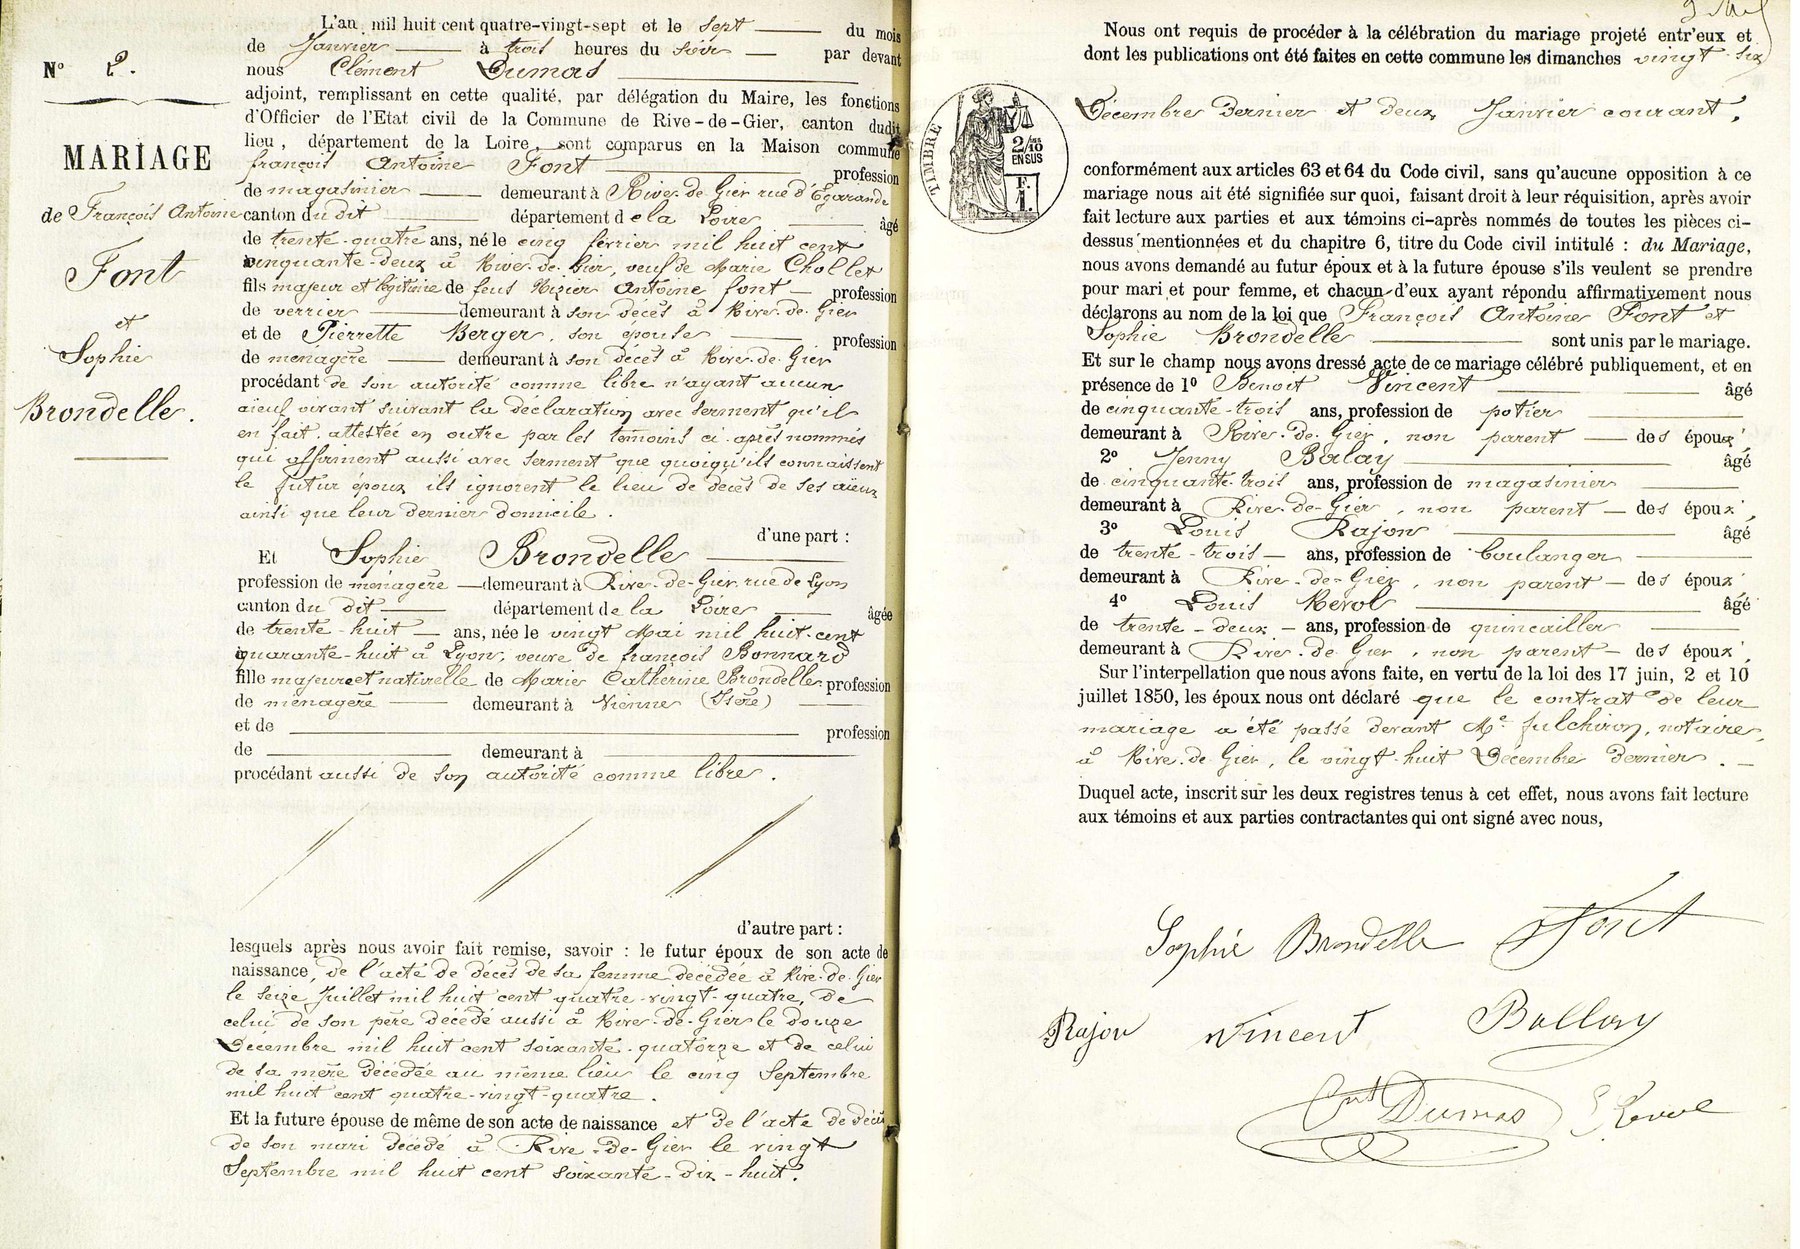 L'an mil huit cent quatre-vingt-sept et le sept du mois
de Janvier à trois heures du soir par devant
nous Clément Dumas
adjoint, remplissant en cette qualité, par délégation du Maire, les fonctions
d'Officier de l'Etat civil de la Commune de Rive-de-Gier, canton dudit
lieu, département de la Loire, sont comparus en la Maison commune
françois Antoine Font profession
de magasinier demeurant à Rive-de-Gier rue d'Egarande
canton du dit département de la Loire âgé
de trente-quatre ans, né le cinq février mil huit cent
cinquante-deux à Rive-de-Gier, veuf de Marie Chollet
fils majeur et légitime de feus Nizier Antoine font profession
de verrier demeurant à son décès à Rive-de-Gier
et de Pierrette Berger, son épouse profession
de ménagère demeurant à son décès à Rive-de-Gier
procédant de son autorité comme libre n'ayant aucun
aïeul vivant suivant la déclaration avec serment qu'il
en fait, attestée en outre par les témoins ci-après nommés
qui affirment aussi avec serment que quoiqu'ils connaissent
le futur époux ils ignorent le lieu de décès de ses aïeux
ainsi que leur dernier domicile.
d'une part :
Et Sophie Brondelle
profession de ménagère demeurant à Rive-de-Gier rue de Lyon
canton du dit département de la Loire âgée
de trente-huit ans, née le vingt Mai mil huit-cent
quarante-huit à Lyon, veuve de françois Bonnard
fille majeure et naturelle de Marie Catherine Brondelle profession
de ménagère demeurant à Vienne (Isère)
et de profession
de demeurant à
procédant aussi de son autorité comme libre.
d'autre part :
lesquels après nous avoir fait remise, savoir : le futur époux de son acte de
naissance, de l'acte de décès de sa femme décédée à Rive-de-Gier
le seize Juillet mil huit cent quatre-vingt-quatre, de
celui de son père décédé aussi à Rive-de-Gier le douze
Décembre mil huit cent soixante-quatorze et de celui
de sa mère décédée au même lieu le cinq Septembre
mil huit cent quatre-vingt-quatre.
Et la future épouse de même de son acte de naissance et de l'acte de décès
de son mari décédé à Rive-de-Gier le vingt
Septembre mil huit cent soixante-dix-huit.
No 2.
MARIAGE
de François Antoine
Font
et
Sophie
Brondelle.
Nous ont requis de procéder à la célébration du mariage projeté entr'eux et
dont les publications ont été faites en cette commune les dimanches vingt-six
Décembre dernier et deux Janvier courant,
TIMBRE
2/10
EN SUS
F.
1.
conformément aux articles 63 et 64 du Code civil, sans qu'aucune opposition à ce
mariage nous ait été signifiée sur quoi, faisant droit à leur réquisition, après avoir
fait lecture aux parties et aux témoins ci-après nommés de toutes les pièces ci-
dessus mentionnées et du chapitre 6, titre du Code civil intitulé : du Mariage,
nous avons demandé au futur époux et à la future épouse s'ils veulent se prendre
pour mari et pour femme, et chacun d'eux ayant répondu affirmativement nous
déclarons au nom de la loi que François Antoine Font et
Sophie Brondelle sont unis par le mariage.
Et sur le champ nous avons dressé acte de ce mariage célébré publiquement, et en
présence de 1º Benoit Vincent âgé
de cinquante-trois ans, profession de potier
demeurant à Rive-de-Gier, non parent des époux,
2º Jenny Balay âgé
de cinquante-trois ans, profession de magasinier
demeurant à Rive-de-Gier, non parent des époux,
3º Louis Rajon âgé
de trente-trois ans, profession de boulanger
demeurant à Rive-de-Gier, non parent des époux
4º Louis Revol âgé
de trente-deux ans, profession de quincailler
demeurant à Rive-de-Gier, non parent des époux,
Sur l'interpellation que nous avons faite, en vertu de la loi des 17 juin, 2 et 10
juillet 1850, les époux nous ont déclaré que le contrat de leur
mariage a été passé devant Me fulchiron, notaire,
à Rive-de-Gier, le vingt-huit Décembre dernier.
Duquel acte, inscrit sur les deux registres tenus à cet effet, nous avons fait lecture
aux témoins et aux parties contractantes qui ont signé avec nous,
Sophie Brondelle Font
Rajon Vincent Ballay
Cnt Dumas L Revol